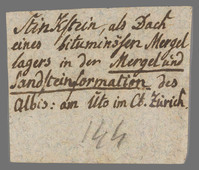 Stinkstein, als Dach
eines bituminösen Mergel
lagers in der Mergel und
Sandsteinformation des
Albis: am Üto im Ct. Zürich
144